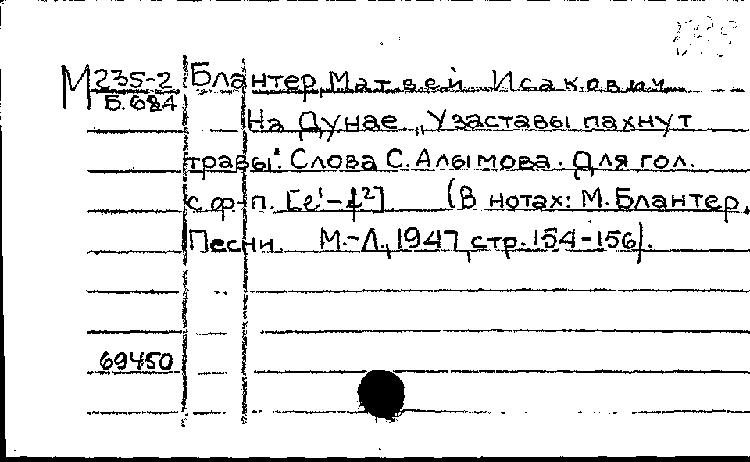 М 235-2 Блантер, Матвей Исакович
Б.684
На Дунае „У заставы пахнут
травы". Слова С. Алымова. Для гол.
с ф-п. [e¹-f²] (В нотах: М. Блантер.
Песни. М.-Л., 1947, стр. 154-156).
69450